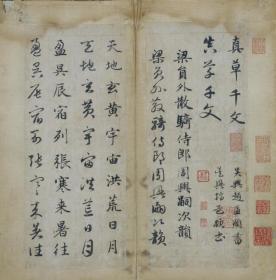 真草千文
真草千文
吳興趙孟頫書
梁員外散騎侍郎周興嗣次韻
梁員外散騎侍郎周興嗣次韻
天地玄黃宇宙洪荒日月
天地玄黃宇宙洪荒日月
盈昃辰宿列張寒來暑往
盈昃辰宿列張寒來暑往